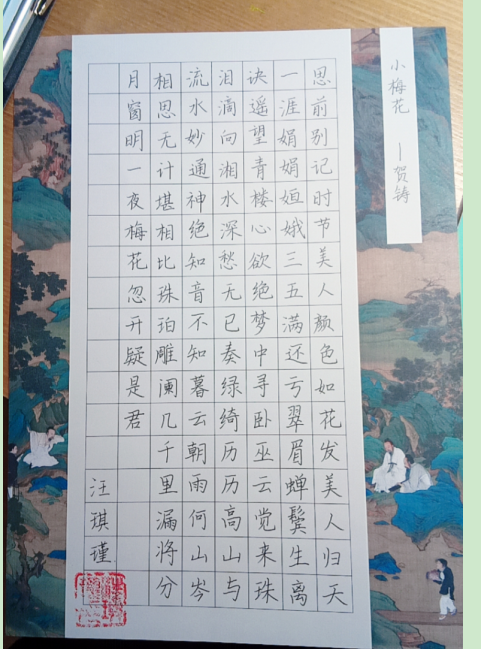 小梅花 —贺铸
思前别记时节美人颜色如花发美人归天
一涯娟娟姮娥三五满还亏翠眉蝉鬓生离
诀遥望青楼心欲绝梦中寻卧巫云觉来珠
泪滴向湘水深愁无已奏绿绮历历高山与
流水妙通神绝知音不知暮云朝雨何山岑
相思无计堪相比珠珀雕阑几千里漏将分
月窗明一夜梅花忽开疑是君
汪琪瑾